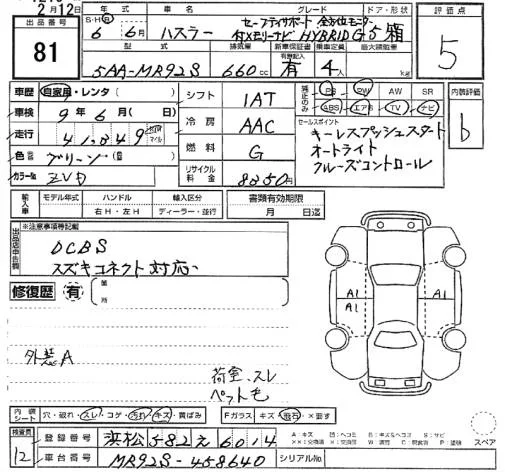 2月12日
出品番号
81
S・H・R 年式 グレード ドア・形状 評価点
6年 6月 ハスラー セーフティサポート 全方位モニター
付メモリーナビ HYBRID G 5 箱
5
型式 排気量 新車保証書 乗車定員 最大積載量
有無記入
5AA-MR92S 660cc 有 4人 kg
車歴 自家用・レンタ( )
車検 9年6月( 日)
走行 41,849 km マイル
色 グリーン( )
カラーNo. ZVD
シフト 1AT
冷房 AAC
燃料 G
リサイクル料金 8250円
純正のみ PS PW AW SR
ABS エアB TV ナビ
内装評価
b
セールスポイント
キーレスプッシュスタート
オートライト
クルーズコントロール
輸入車 モデル年式 ハンドル 輸入区分
年 右H・左H ディーラー・並行
書類有効期限
月 日迄
出品店申告欄
※注意事項等記載
DCBS
スズキコネクト対応
修復歴 有 箇所
外装A
荷室、スレ
ペット毛
A1
A1
A1
内張シート 穴・破れ・スレ・コゲ・汚れ・キズ・黄ばみ
Fガラス キズ・飛石・×要す
スペア
検査員
12
登録番号 浜松582え6014
車台番号 MR92S-458640
シリアルNo.
A：キズ U：ヘコミ B：キズ&ヘコミ S：サビ